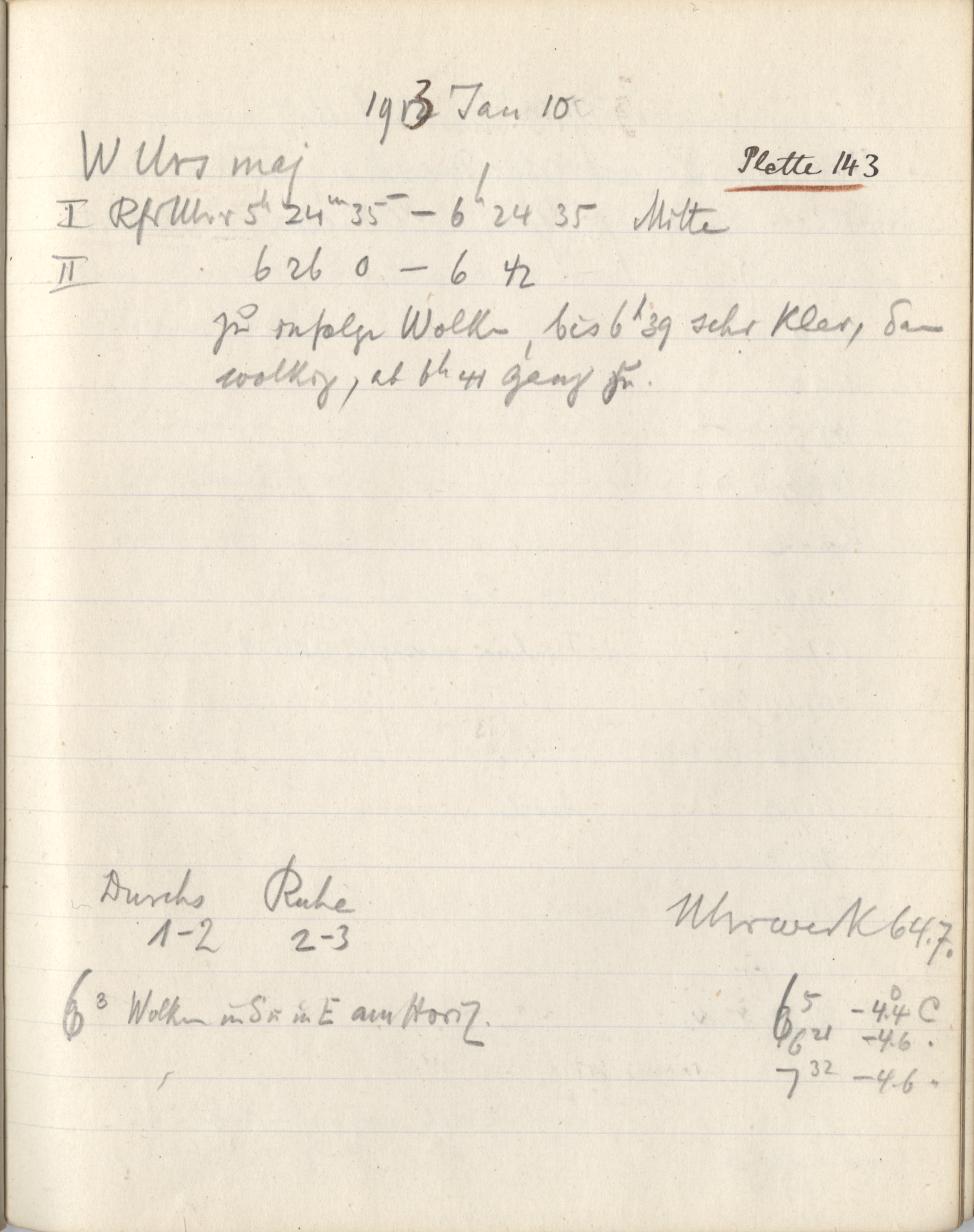 1913 Jan 10
W Urs maj
Platte 143
I RfrUhr 5h 24m 35s – 6h 24 35 Mitte
II 6 26 0 – 6 42
zu infolge Wolken, bis 6h 39 sehr klar, dan
wolkig, ab 6h 41 ganz zu.
Durchs Ruhe
1-2 2-3
Uhrwerk 64.7.
6 3 Wolken in S u in E am Horiz.
6 5 –4.4 C
6 21 –4.6 "
7 32 –4.6 "